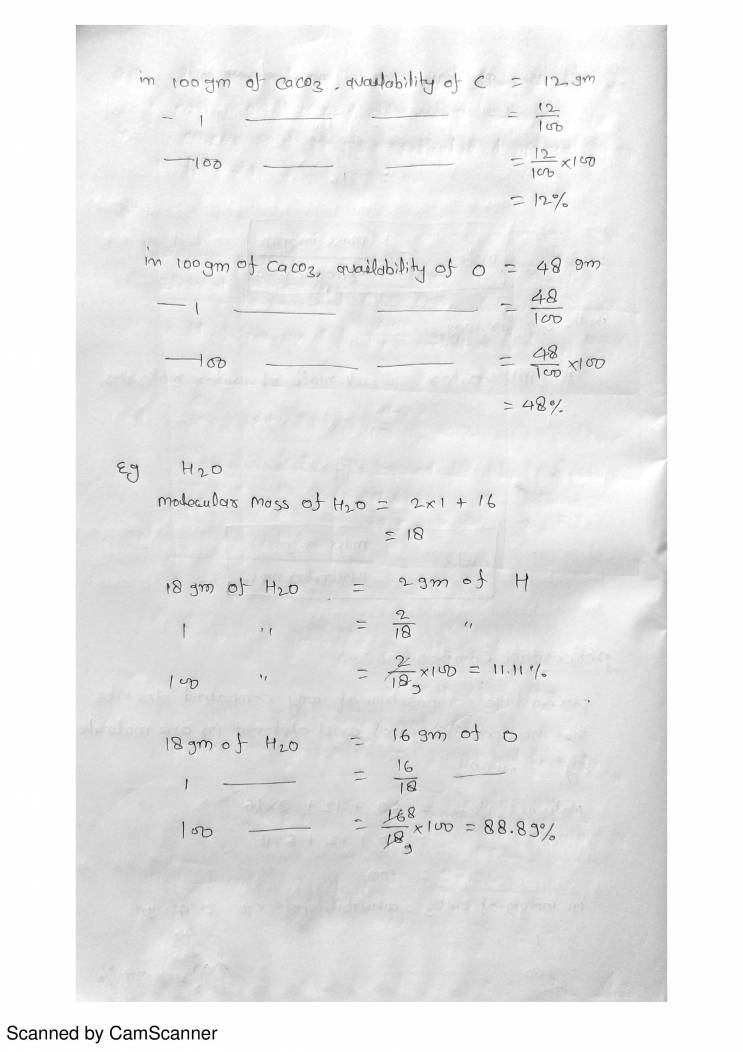 in 100gm of CaCO3, availability of C = 12 gm
- 1 —— —— = 12/100
—100 —— —— = 12/100 ×100
= 12%
in 100gm of CaCO3, availability of O = 48 gm
— 1 —— —— = 48/100
—100 —— —— = 48/100 ×100
= 48%
Eg H2O
Molecular Mass of H2O = 2×1 + 16
= 18
18 gm of H2O = 2 gm of H
1 " = 2/18 "
100 " = 2/18 9 ×100 = 11.11%
18 gm of H2O = 16 gm of O
1 —— = 16/18 ——
100 —— = 16 8/18 9 ×100 = 88.89%
Scanned by CamScanner